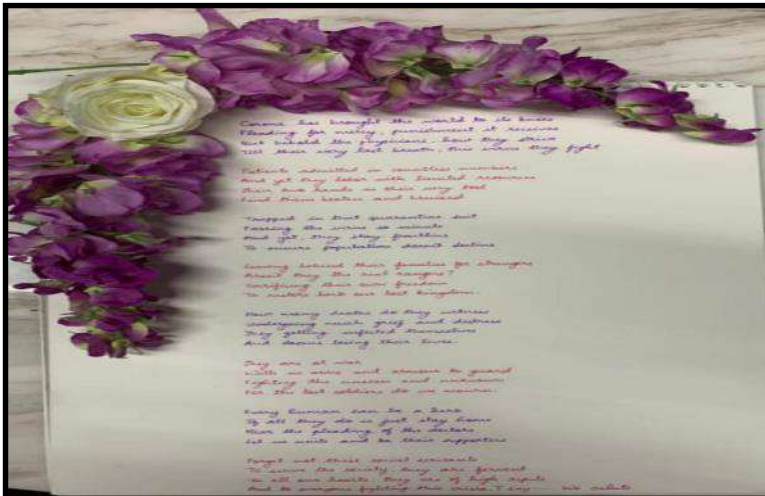 Corona has brought the world to its knees
Pleading for mercy, punishment it receives
But behold the physicians, how they strive
Till their very last breath, this virus they fight
Patients admitted in countless numbers
And yet they labor with limited resources
Their two hands as their very tool
Lend them beaten and bruised
Trapped in that quarantine suit
Facing the virus so minute
And yet they stay fearless
To ensure population doesn't decline
Leaving behind their families for strangers
Aren't they the real rangers?
Sacrificing their own freedom
To restore back our lost kingdom.
How many deaths do they witness
Undergoing much grief and distress
They getting infected themselves
And losing their lives.
They are at war
With no arms and armour to guard
Fighting the unseen and unknown
For the lost soldiers do we mourn.
Every human can be a hero
If all they do is just stay home
Hear the pleading of the doctors
Let us unite and be their supporters
Forget not these social servants
To serve the society they are fervent
In all our hearts, they are of high repute
And to everyone fighting this crisis, I say We salute